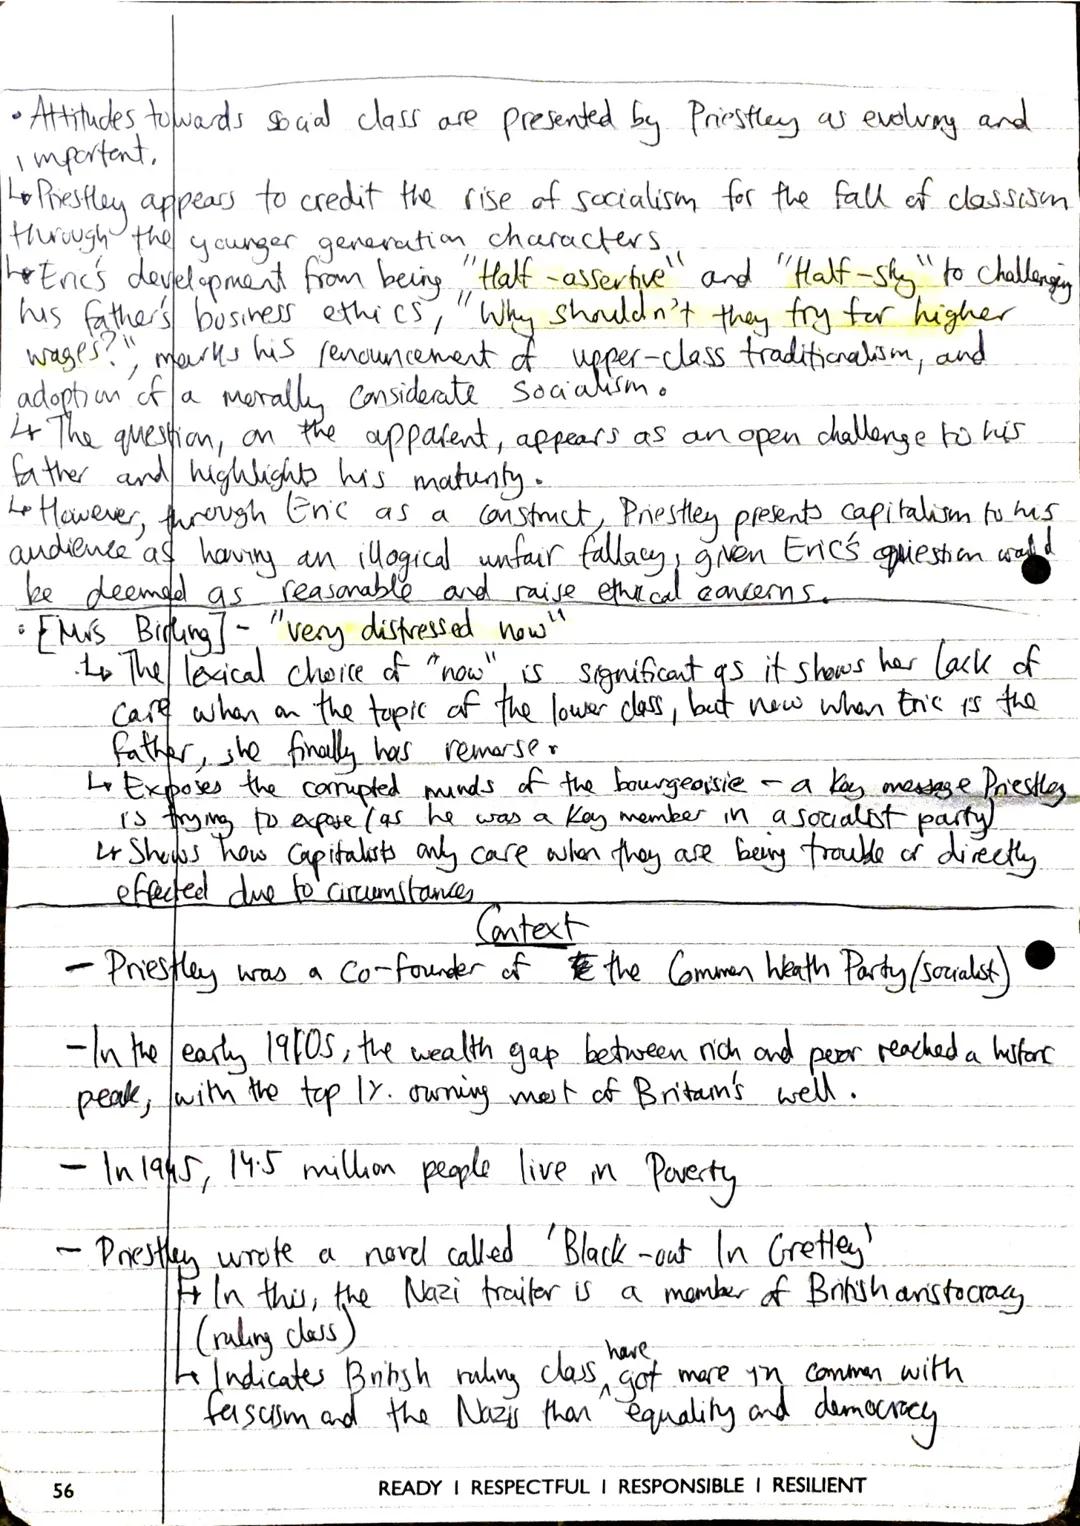 • Attitudes towards social class are presented by Priestley as evolving and
important.
↳ Priestley appears to credit the rise of socialism for the fall of classism
through the younger generation characters
↳ Eric's development from being "Half-assertive" and "Half-shy" to challenging
his father's business ethics, "Why shouldn't they try for higher
wages?", marks his renouncement of upper-class traditionalism, and
adoption of a morally considerate socialism.
↳ The question, on the apparent, appears as an open challenge to his
father and highlights his maturity.
↳ However, through Eric as a construct, Priestley presents capitalism to his
audience as having an illogical unfair fallacy, given Eric's question would
be deemed as reasonable and raise ethical concerns.
• [Mrs Birling] - "very distressed now"
↳ The lexical choice of "now" is significant as it shows her lack of
care when on the topic of the lower class, but now when Eric is the
father, she finally has remorse.
↳ Exposes the corrupted minds of the bourgeoisie - a key message Priestley
is trying to expose (as he was a key member in a socialist party)
↳ Shows how capitalists only care when they are being trouble or directly
effected due to circumstances
Context
- Priestley was a co-founder of the Common Weath Party (socialist)
- In the early 1910s, the wealth gap between rich and poor reached a historic
peak, with the top 1%. owning most of Britain's well.
- In 1945, 14.5 million people live in Poverty
- Priestley wrote a novel called 'Black-out In Gretley'
↳ In this, the Nazi traitor is a member of British aristocracy
(ruling class)
↳ Indicates British ruling class have got more in common with
fascism and the Nazis than equality and democracy
56 READY | RESPECTFUL | RESPONSIBLE | RESILIENT